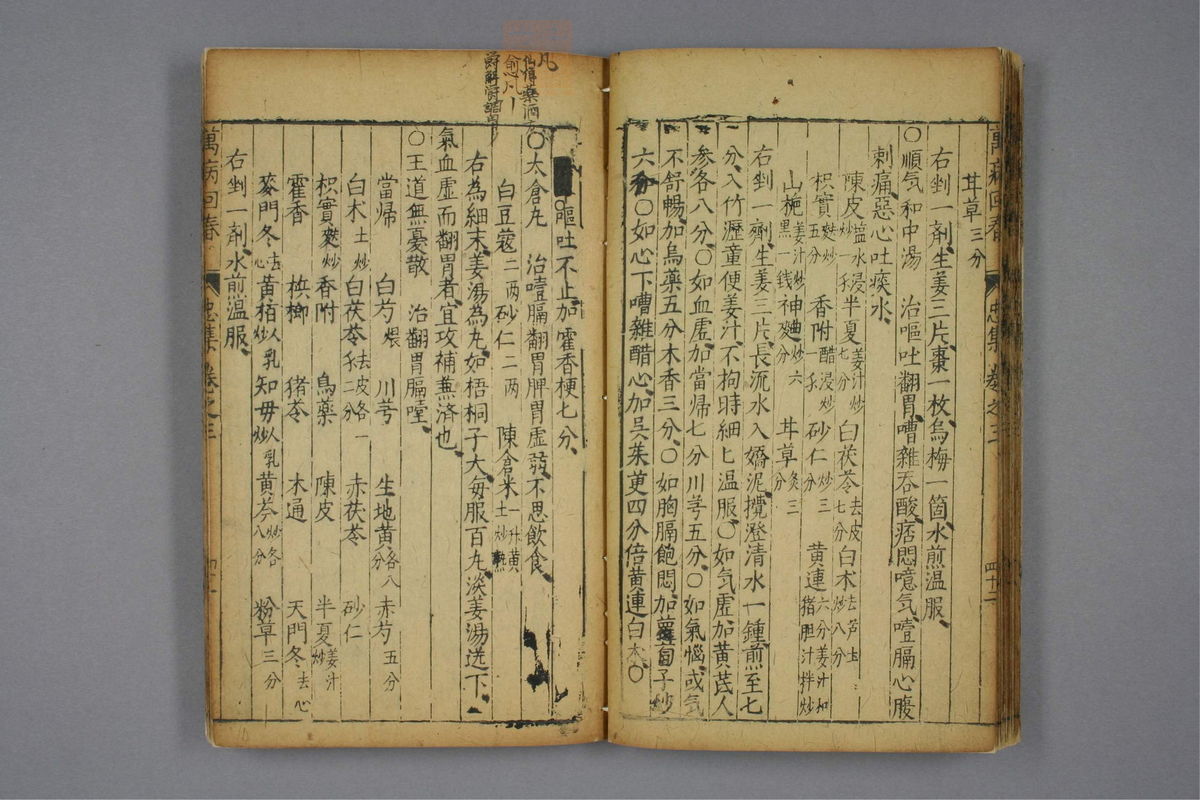 萬病回春　忠集　卷之三　四十二
甘草三分
右剉一剤、生姜三片、棗一枚、烏梅一箇、水煎温服、
〇順气和中湯　治嘔吐翻胃、嘈雜吞酸、痞悶噫气、噎膈心腹
刺痛、惡心吐痰水、
陳皮塩水浸炒一戋　半夏七分姜汁炒　白茯苓去皮七分　白术去芦土炒八分
枳實麩炒五分　香附醋浸炒一戋　砂仁炒三分　黄連六分姜汁和猪胆汁拌炒
山梔姜汁炒黒一銭　神麯炒六分　甘草炙三分
右剉一劑、生姜三片、長流水入嬌泥攪澄清水一鍾、煎至七
分、入竹瀝童便姜汁、不拘時細匕温服〇如气虚加黄芪人
参各八分、〇如血虚、加當帰七分川芎五分、〇如氣惱或气
不舒暢、加烏藥五分木香三分、〇如胸膈飽悶、加蘿蔔子炒
六分〇如心下嘈雜醋心、加吴茱萸四分倍黄連白术、〇
如嘔吐不止、加霍香梗七分、
〇太倉丸　治噎膈翻胃、脾胃虚弱、不思飲食、
白豆蔻二两　砂仁二两　陳倉米一升黄土炒熟
右為細末、姜湯為丸、如梧桐子大、毎服百丸、淡姜湯送下、
氣血虚而翻胃者、宜攻補兼済也、
〇王道無憂散　治翻胃膈噎、
當帰　白芍煨　川芎　生地黄各八分　赤芍五分
白术土炒　白茯苓去皮各一戋二分　赤茯苓　砂仁
枳實麩炒　香附　烏藥　陳皮　半夏姜汁炒
霍香　梹榔　猪苓　木通　天門冬去心
麥門冬去心　黄柏人乳炒　知毋人乳炒　黄芩炒各八分　粉草三分
右剉一剤、水煎温服、
萬病回春　忠集　卷之三